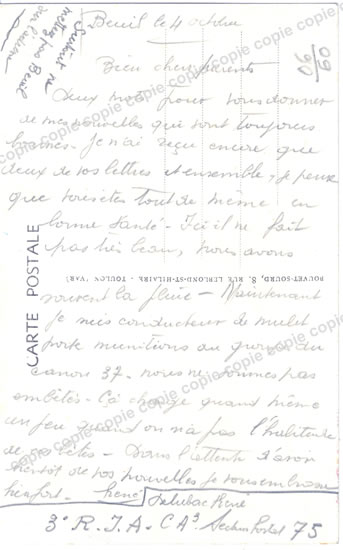 Surtout ne
mettez pas Beuil
sur l'adresse
Beuil le 4 octobre
Bien chers parents
Deux mots pour vous donner
de mes nouvelles qui sont toujours
bonnes. Je n'ai reçu encore que
deux de vos lettres et ensemble, je pense
que vous êtes tout de même en
bonne santé - Ici il ne fait
pas très beau, nous avons
souvent la pluie - Maintenant
je suis conducteur de mulet
porte munitions au groupe du
canon 37 - nous ne sommes pas
embêtés - Ça change quand même
un peu quand on n'a pas l'habitude
de - Dans l'attente d'avoir
bientôt de vos nouvelles je vous embrasse
bien fort - René
Delubac René
3e R.I.A - CA3 Secteur Postal 75
CARTE POSTALE
BOUVET-SOURD, 8, RUE LEBLOND-ST-HILAIRE - TOULON (VAR)
09
90
copie copie copie copie copie copie